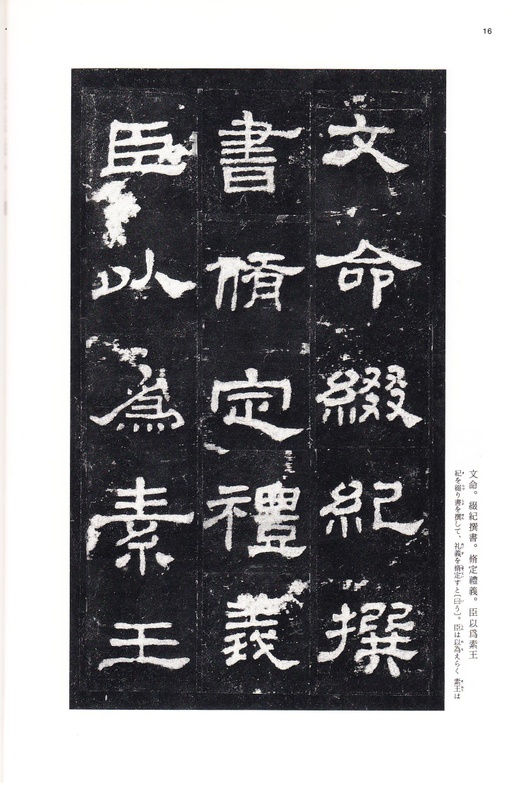 16
文命綴紀撰
書脩定禮義
臣以為素王
文命。綴紀撰書。脩定禮義。臣以爲素王
紀を綴り書を撰して、礼義を脩定すと〔曰う〕。臣は以為えらく 素王は